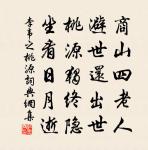 商山四老人
避世還出世
桃源獨終隐
坐看日月逝
李韋之桃源詞典綱集